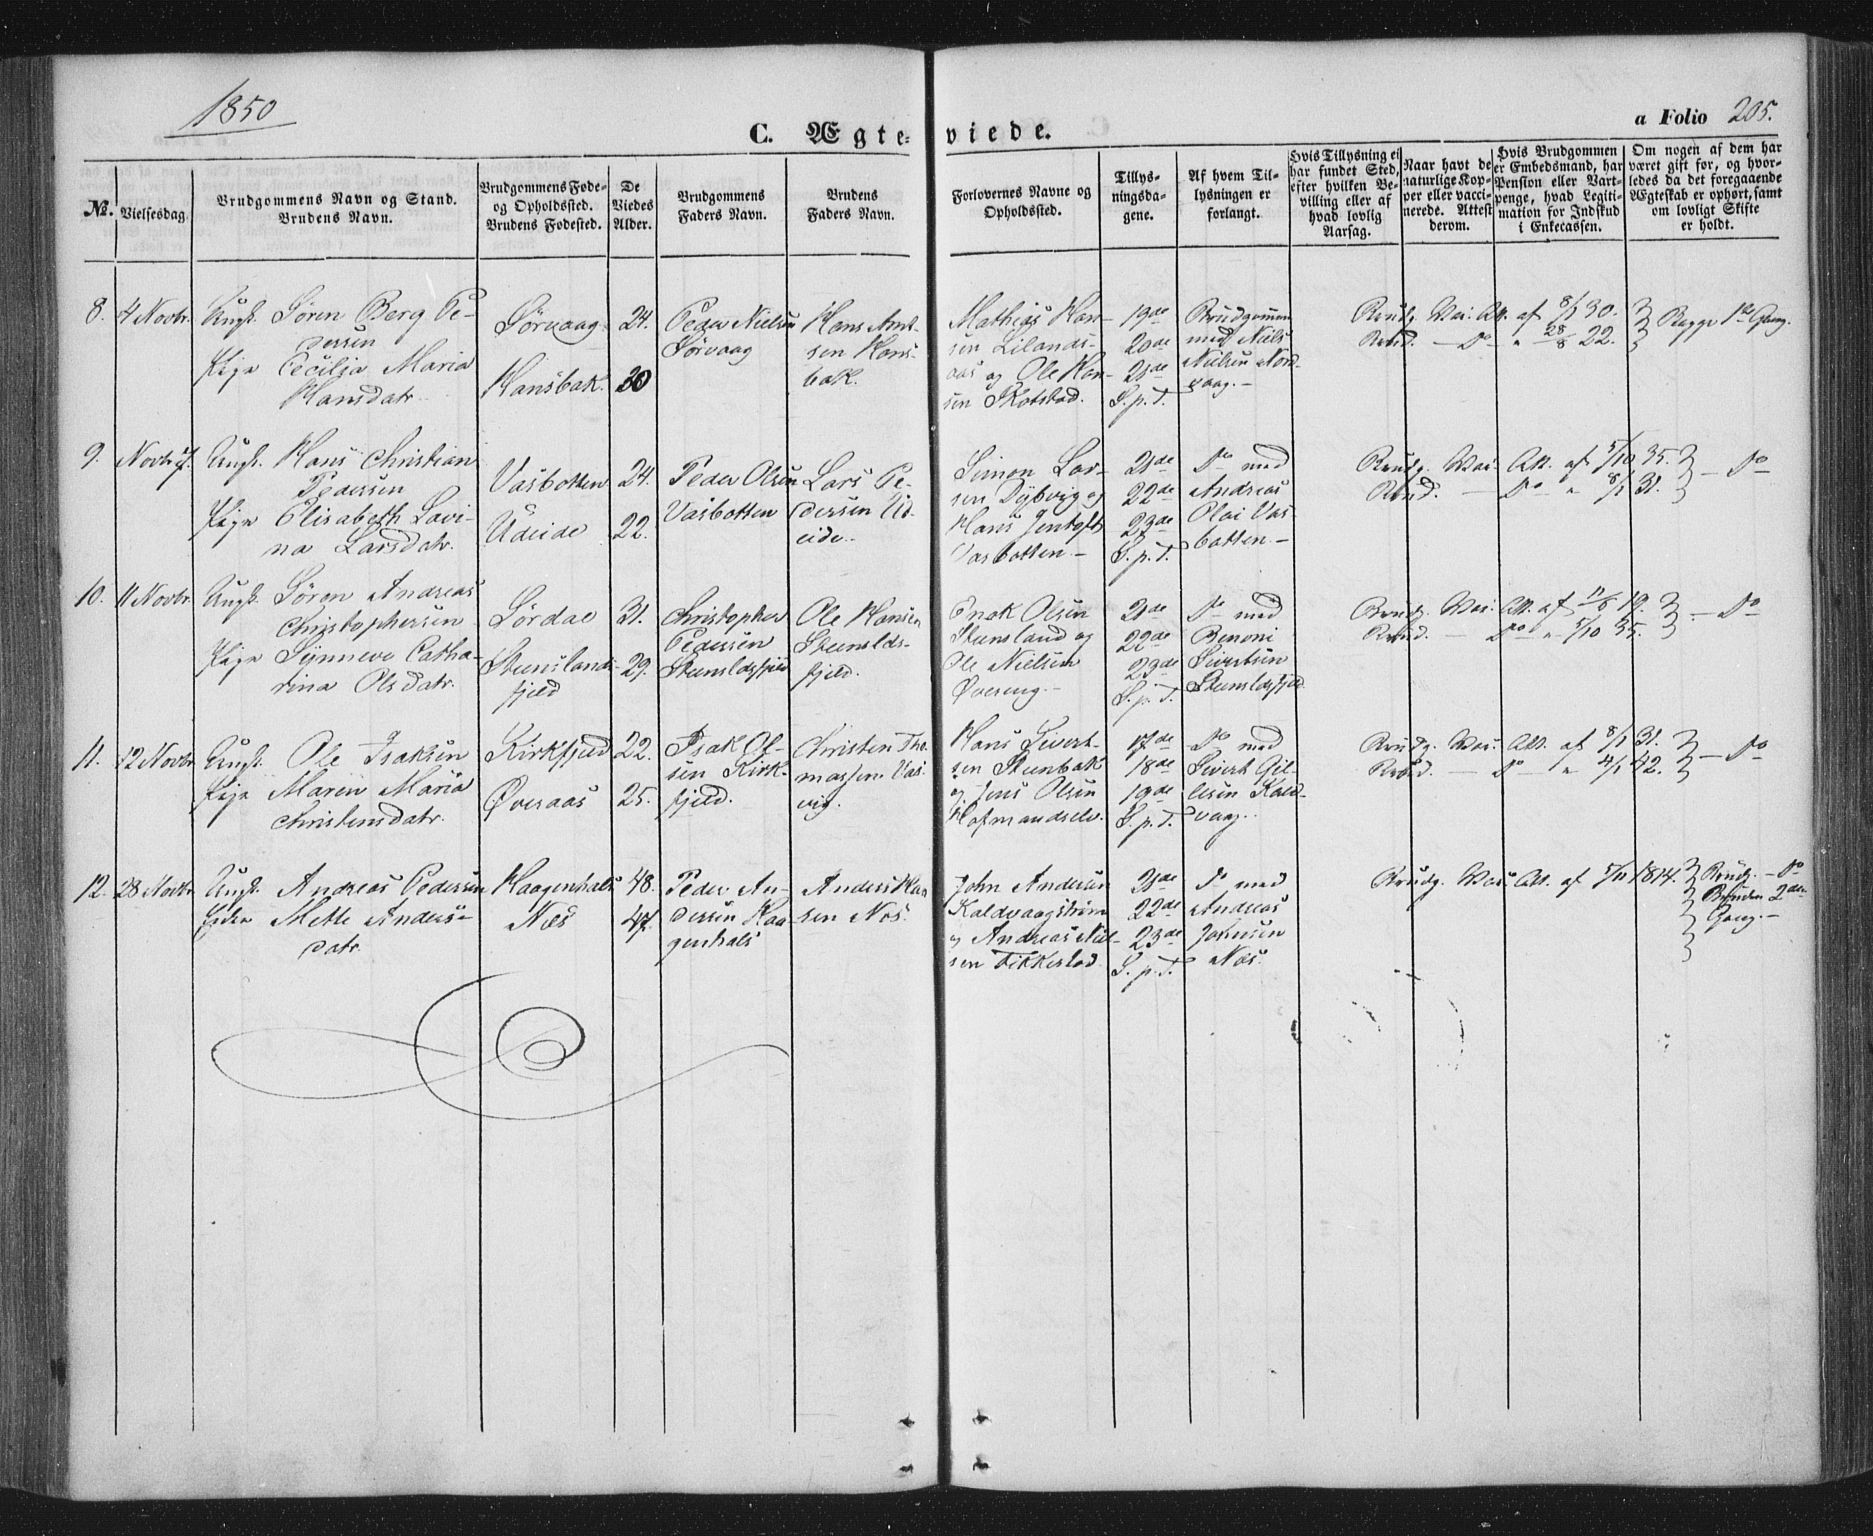 1850
C. Ægteviede.
a Folio 205.
No.
Vielsesdag.
Brudgommens Navn og Stand.
Brudens Navn.
Brudgommens Føde-
og Opholdssted.
Brudens Fødested.
De
Viedes
Alder.
Brudgommens
Faders Navn.
Brudens
Faders Navn.
Forlovernes Navne og
Opholdssted.
Tillys-
ningsda-
gene.
Af hvem Til-
lysningen er
forlangt.
Hvis Tillysning ei
har fundet Sted,
efter hvilken Be-
villing eller af
hvad lovlig
Aarsag.
Naar havt de
naturlige Kop-
per eller vacci-
nerede. Attest
derom.
Hvis Brudgommen
er Embedsmand, har
Pension eller Vart-
penge, hvad Legiti-
mation for Indskud
i Enkecassen.
Om nogen af dem har
været gift før, og hvor-
ledes da det foregaaende
Ægteskab er ophørt, samt
om lovligt Skifte
er holdt.
8.
4 Novbr.
Ungk. Søren Berg Pe-
dersen
Pige Cecilia Maria
Hansdatr.
Sørvaag
Hansbak.
24.
30
Peder Nielsen
Sørvaag
Hans Ant-
sen Hans-
bak.
Mathias Han-
sen Lilands-
aas og Ole Han-
sen Skotstad.
19de
20de
21de
S.p.T.
Brudgommen
med Niels
Nielsen Nord-
vaag.
Brudg. Vac. Att. af 8/1 30.
Brud. — Do " 28/8 22.
Begge 1ste Gang.
9.
Ungk. Hans Christian
Pedersen
Pige Elisabeth Lovi-
na Larsdatr.
Vasbotten
Udeide
24.
22.
Peder Olsen
Vasbotten
Lars Pe-
dersen Ud-
eide.
Simon Lar-
sen Dybvig og
Hans Jentoft
Vasbotten
21de
22de
23de
S.p.T.
Do med
Andreas
Olai Vas-
botten
Brudg. Vac. Att. af 5/10 35.
Brud. — Do " 8/1 31.
— Do
10.
11 Novbr.
Ungk. Søren Andreas
Christophersen
Pige Synneve Catha-
rina Olsdatr.
Sørdal
Steensland-
fjeld
31.
29.
Christopher
Pedersen
Steensldsfjeld
Ole Hansen
Steenslds-
fjeld.
Enok Olsen
Steensland og
Ole Nielsen
Øvereng.
21de
22de
23de
S.p.T.
Do med
Benoni
Sivertsen
Steensldsfjeld
Brudg. Vac. Att. af 19.
Brud. — Do " 5/10 35.
— Do
11.
12 Novbr.
Ungk. Ole Isaksen
Pige Maren Maria
Christensdatr.
Kirkfjeld
Øveraas
22.
25.
Isak Ol-
sen Kirk-
fjeld.
Christen Tho-
massen Vas-
vig.
Hans Sivert-
sen Steenbak
og Jens Olsen
Hofmandselv.
17de
18de
19de
S.p.T.
Do med
Sivert
Kald-
vaag.
Brudg. Vac. Att. af 8/1 31.
Brud. — Do " 4/1 42.
— Do
12.
28 Novbr.
Ungk. Andreas Pedersen
Enke Mette Anders-
datr.
Haagenhals
Næs
48.
47.
Peder An-
dersen Haa-
genhals
Anders
sen Næs.
John Andersen
Kaldvaagstrøm
og Andreas Niel-
sen Fikkestad.
21de
22de
23de
S.p.T.
Do med
Andreas
Jonsen
Næs.
Brudg. Vac. Att. af 1814.
Brudg. — Do
Bruden 2den
Gang.